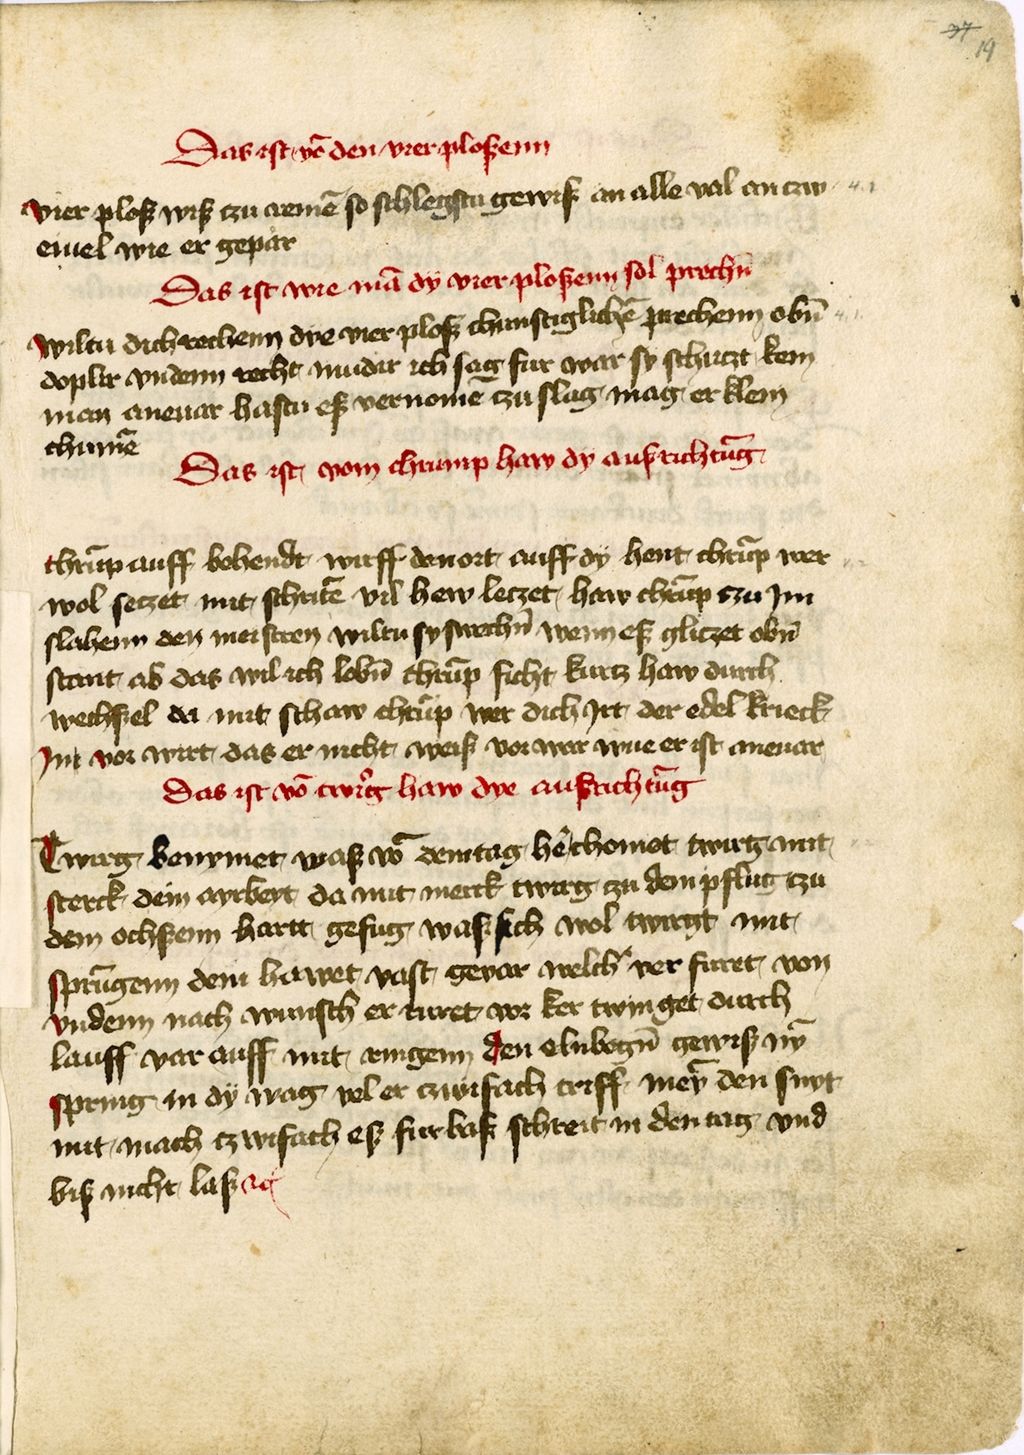 37
19
Das ist vō den vier ploßenn
vier ploß wiß czu remē so schlegstu gewiß an alle val an czw
eiuel wie er gepar
Das ist wie mā dy vier ploßenn sol prechn̄
wiltu dich rechenn dye vier ploß chunstiglichē prechenn obn̄
doplir vndenn recht mudir ich sag fur war sy schuczt kein
man aneuar hastu eß vernomē zu slag mag er klein
chumē
Das ist vom chrump haw dy außrichtūg
chrūp auff behendt wirff den ort auff dy hent chrūp wer
wol seczet mit schritē vil hew leczet haw chrūp czu Im
slahenn den meistern wiltu sy swechn̄ wenn eß gliczet obn̄
stant ab das wil ich lobn̄ chrūp ficht kurcz haw durch
wechßel da mit schaw chrūp wer dich Irt der edel krieck
Im vor wirt das er nicht weiß vor war wue er ist aneuar
Das ist vō twirg haw dye außrichtūg
Twirg benymet waß vō dem tag her chomet twirg mit
sterck dein arbeyt da mit merck twirg zu dem pflug czu
dem ochßenn hartt gefug waß sich wol twirgt mit
sprūgenn dem hawet vast gevar welch' ver furet von
vndenn nach wunsch er ruret vor ker twinget durch
lauff var auff mit ringenn den elnbogn̄ gewiß nȳ
spring in dy wag vel er czwifach triff meȳ den snyt
mit mach czwifach eß furbaß schreit in den tag vnd
biß nicht laß